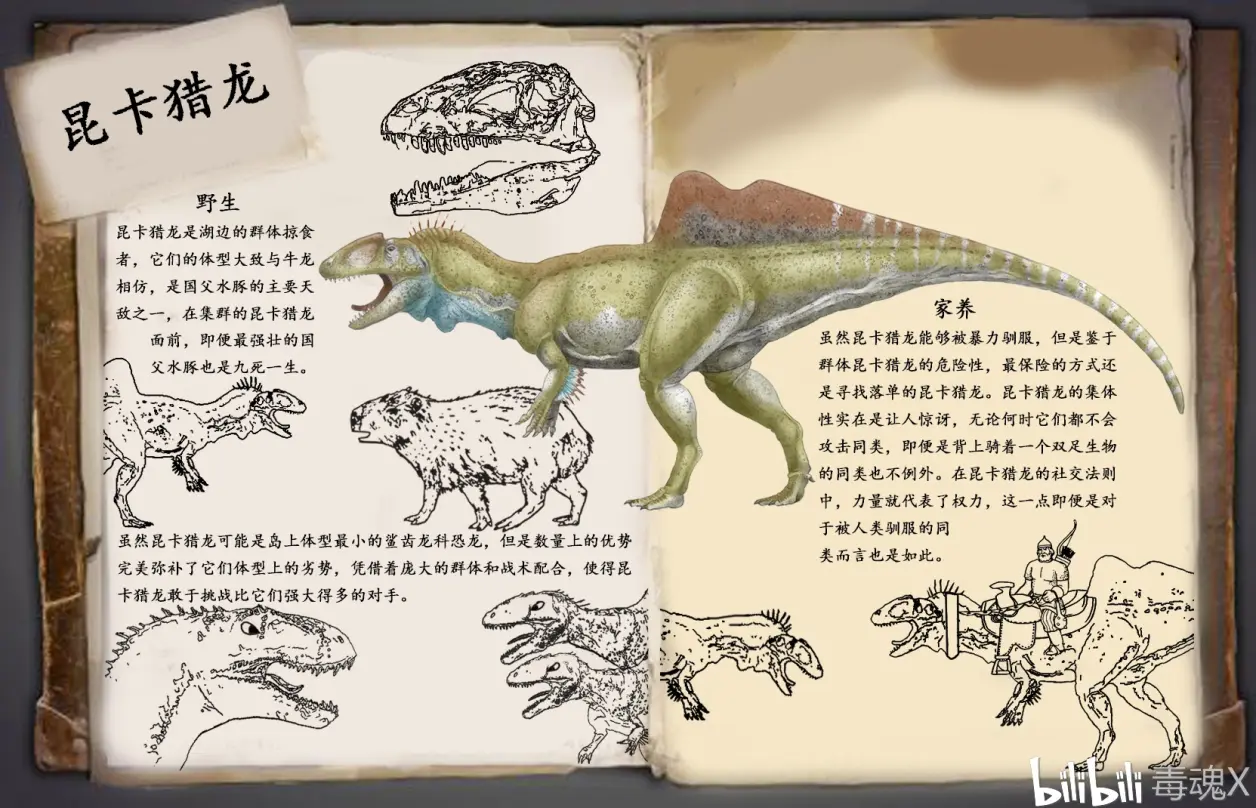 昆卡猎龙
野生
昆卡猎龙是湖边的群体掠食
者，它们的体型大致与牛龙
相仿，是国父水豚的主要天
敌之一，在集群的昆卡猎龙
面前，即便最强壮的国
父水豚也是九死一生。
虽然昆卡猎龙可能是岛上体型最小的鲨齿龙科恐龙，但是数量上的优势
完美弥补了它们体型上的劣势，凭借着庞大的群体和战术配合，使得昆
卡猎龙敢于挑战比它们强大得多的对手。
家养
虽然昆卡猎龙能够被暴力驯服，但是鉴于
群体昆卡猎龙的危险性，最保险的方式还
是寻找落单的昆卡猎龙。昆卡猎龙的集体
性实在是让人惊讶，无论何时它们都不会
攻击同类，即便是背上骑着一个双足生物
的同类也不例外。在昆卡猎龙的社交法则
中，力量就代表了权力，这一点即便是对
于被人类驯服的同
类而言也是如此。
bilibili 毒魂X